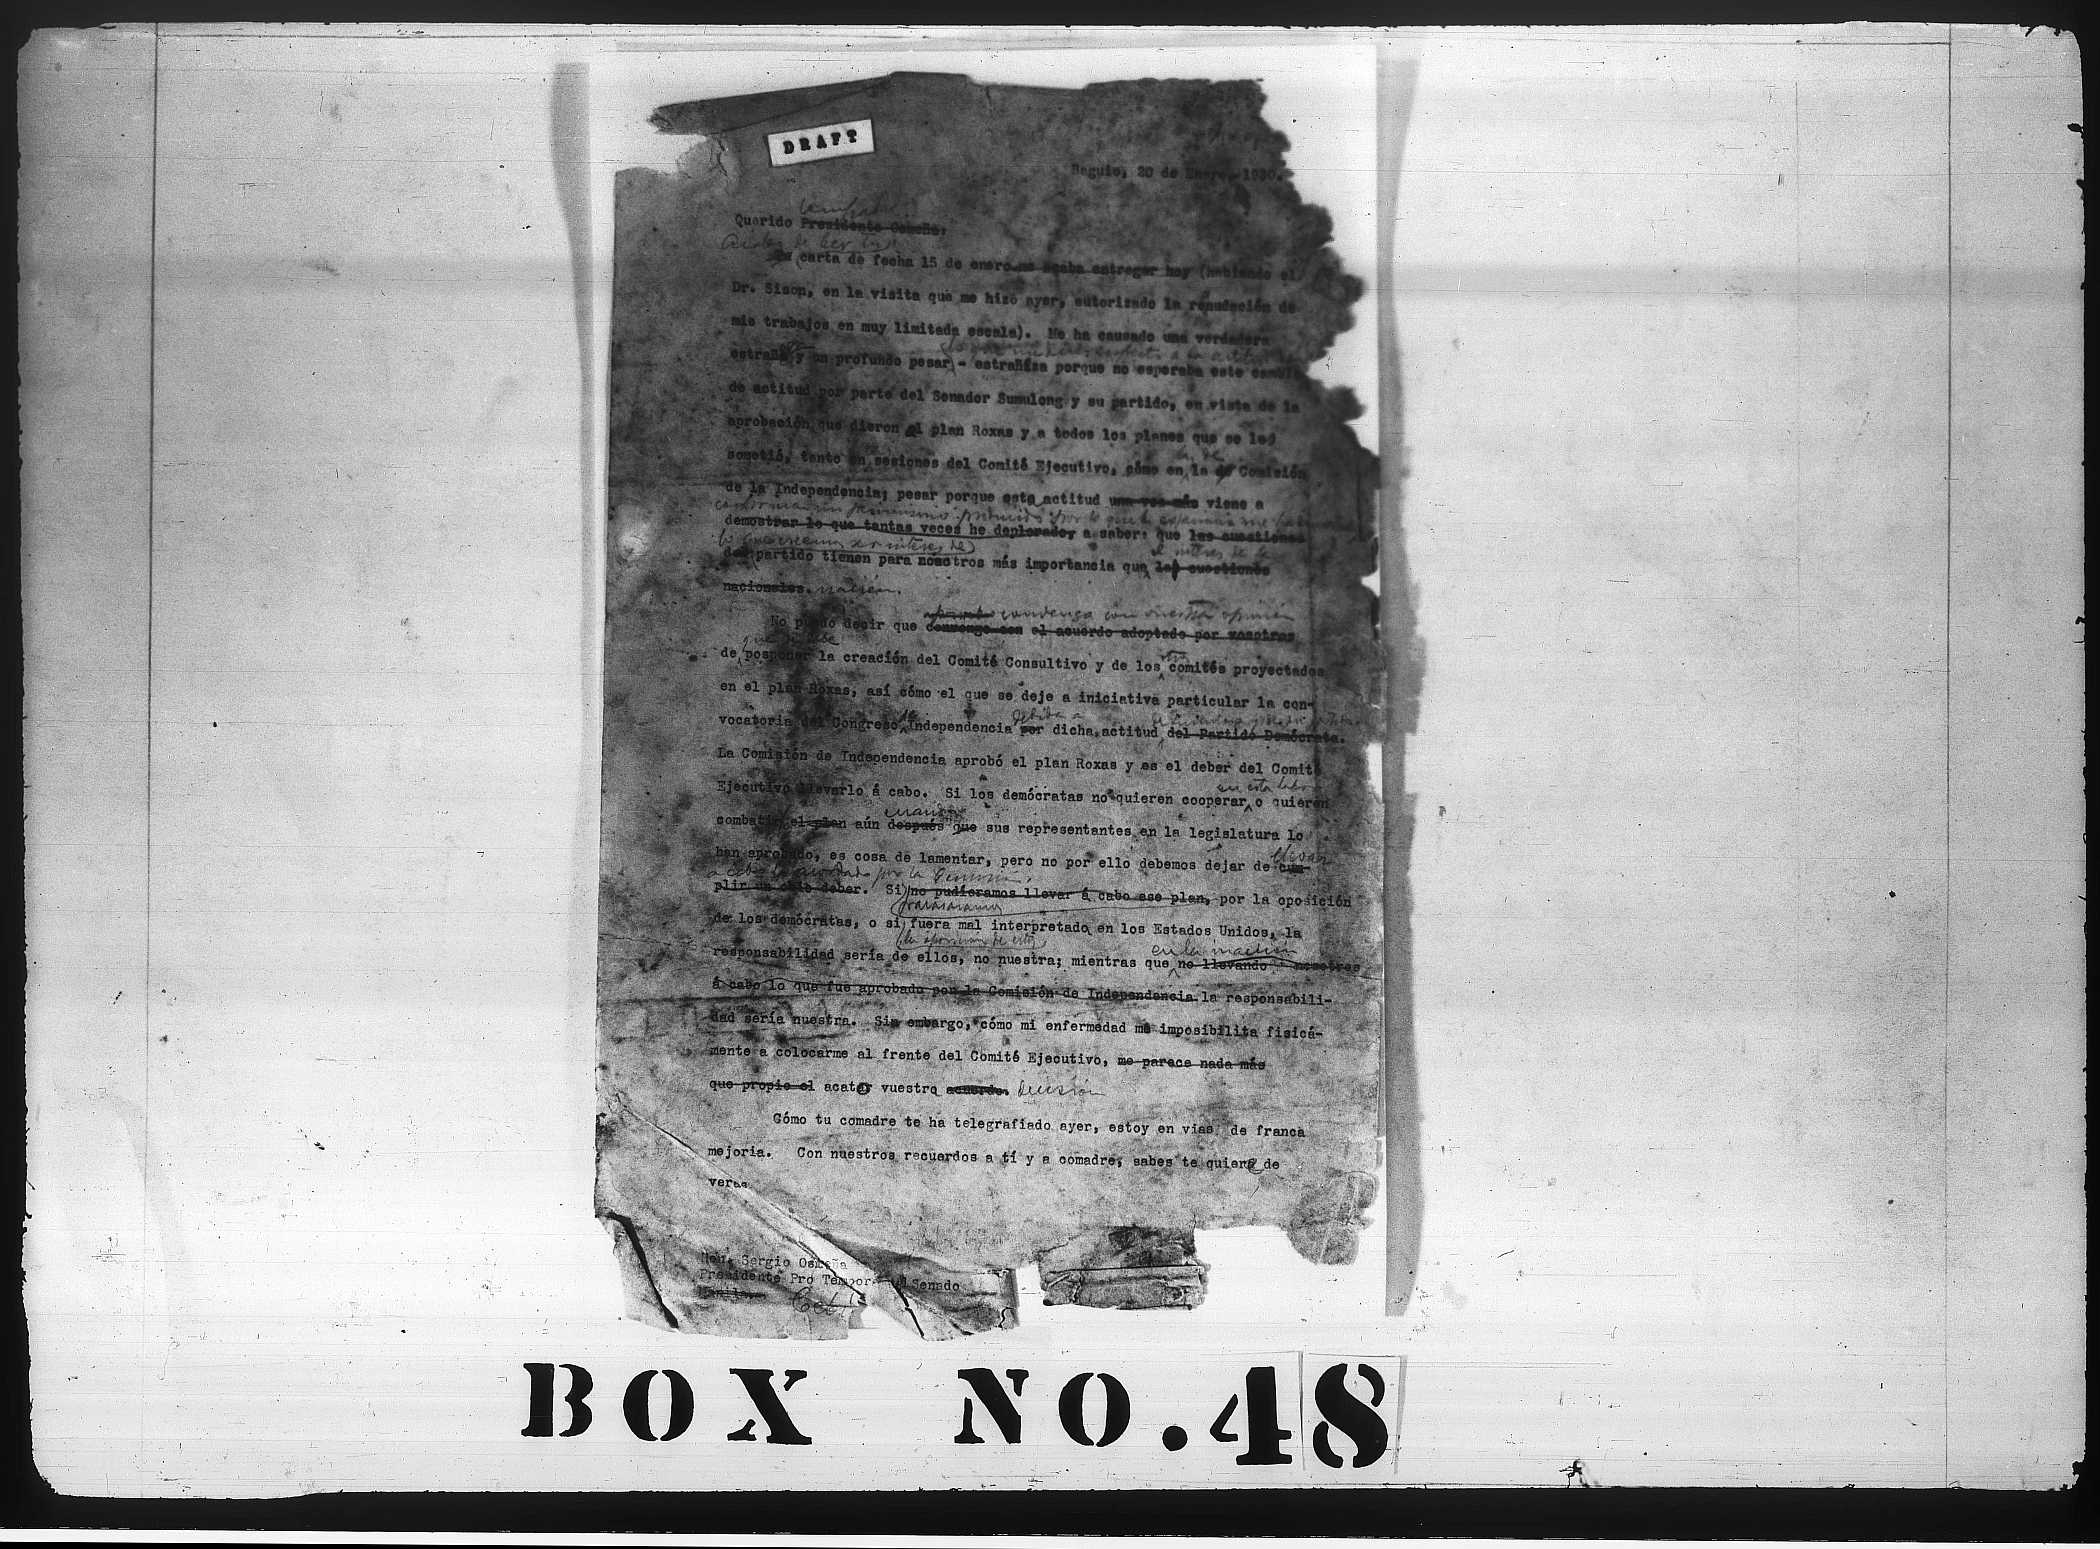 DRAFT
Baguio, 20 de Enero, 1930.
Querido Presidente Osmeña:
Acabo de leer tu
Tu carta de fecha 15 de enero me acaba entregar hoy (habiendo el
Dr. Sison, en la visita que me hizo ayer, autorizado la renudación de
mis trabajos en muy limitada escala). Me ha causado una verdadera
y un profundo pesar - estrañeza porque no esperaba este cambio
de actitud por parte del Senador Sumulong y su partido, en vista de la
aprobación que dieron al plan Roxas y a todos los planes que se les
sometió, tanto en sesiones del Comité Ejecutivo, cómo en la de Comisión
de la Independencia; pesar porque esta actitud una vez más viene a
demostrar lo que tantas veces he deplorado, a saber: que las cuestiones
lo que creemos ser interes de
del partido tienen para nosotros más importancia que las cuestiones
el interes de la
nacionales. nación.
convenga con vuestra opinión
No puedo decir que convengo con el acuerdo adoptado por vosotros
que se debe
de posponer la creación del Comité Consultivo y de los comités proyectados
en el plan Roxas, así cómo el que se deje a iniciativa particular la con-
debida a
vocatoria del Congreso de Independencia por dicha actitud del Partido Demócrata.
La Comisión de Independencia aprobó el plan Roxas y es el deber del Comité
en esta labor
Ejecutivo llevarlo á cabo. Si los demócratas no quieren cooperar o quieren
cuando
combatir el plan aún después que sus representantes en la legislatura lo
llevar
han aprobado, es cosa de lamentar, pero no por ello debemos dejar de cum-
a cabo lo acordado por la Comisión.
plir un deber. Si no pudieramos llevar á cabo ese plan, por la oposición
fracasaramos
de los demócratas, o si fuera mal interpretado en los Estados Unidos, la
la oposición de estos
en la inacción
responsabilidad sería de ellos, no nuestra; mientras que no llevando nosotros
á cabo lo que fué aprobado por la Comisión de Independencia la responsabili-
dad sería nuestra. Sin embargo, cómo mi enfermedad me imposibilita fisicá-
mente a colocarme al frente del Comité Ejecutivo, me parece nada más
que propio el acatar vuestra acuerdo. decisión
Cómo tu comadre te ha telegrafiado ayer, estoy en vias de franca
mejoria. Con nuestros recuerdos a tí y a comadre, sabes te quiere de
veras
Hon. Sergio Osmeña
Presidente Pro Tempore del Senado
Manila.
BOX NO.48